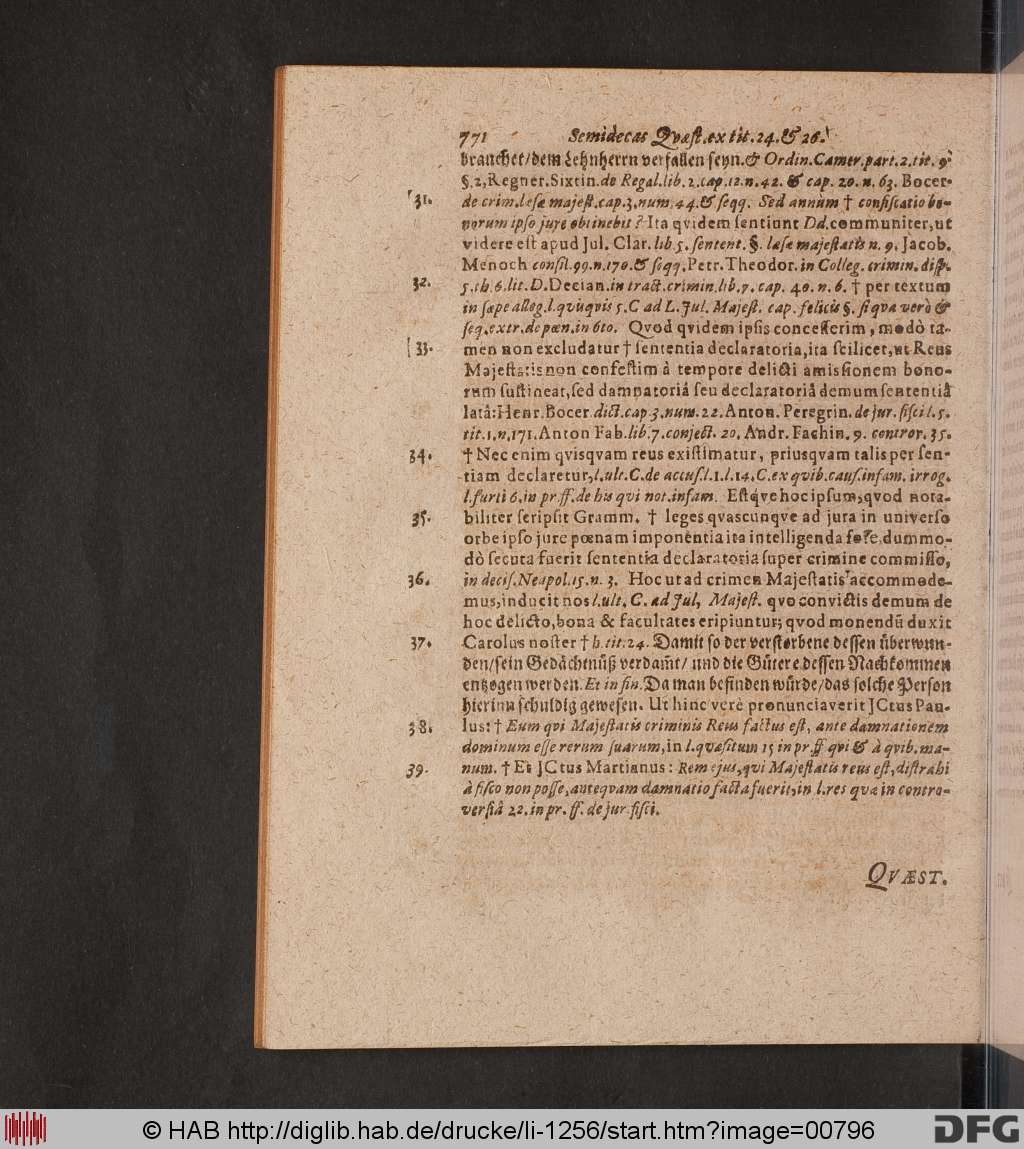 771 Semidecas Qvæſt. ex tit. 24. & 26.
brauchet/dem Lehnherrn verfallen ſeyn. & Ordin. Camer. part. 2. tit. 9.
§. 2, Regner. Sixtin. de Regal. lib. 2. cap. 12. n. 42. & cap. 20. n. 63. Bocer.
31. de crim. leſæ majeſt. cap. 3. num. 44. & ſeqq. Sed annùm † confiſcatio bo-
norum ipſo jure obtinebit? Ita qvidem ſentiunt Dd. communiter, ut
videre eſt apud Jul. Clar. lib. 5. ſentent. §. læſæ majeſtatis n. 9. Jacob.
Menoch conſil. 99. n. 170. & ſeqq. Petr. Theodor. in Colleg. crimin. diſp.
32. 5. th. 6. lit. D. Decian. in tract. crimin. lib. 7. cap. 40. n. 6. † per textum
in ſæpe alleg. l. qvisqvis 5. C ad L. Jul. Majeſt. cap. felicis §. ſi qva verò &
ſeq. extr. de pœn. in 6to. Qvod qvidem ipſis conceſſerim, modò ta-
33. men non excludatur † ſententia declaratoria, ita ſcilicet, ut Reus
Majeſtatis non confeſtim à tempore delicti amiſſionem bono-
rum ſuſtineat, ſed damnatoriâ ſeu declaratoriâ demum ſententiâ
latâ: Henr. Bocer. dict. cap 3. num. 22. Anton. Peregrin. de jur. fiſci l. 5.
tit. 1. n. 171. Anton Fab. lib. 7. conject. 20. Andr. Fachin. 9. contror. 35.
34. † Nec enim qvisqvam reus exiſtimatur, priusqvam talis per ſen-
tiam declaretur, l. ult. C. de accuſ. l. 1. l. 14. C. ex qvib. cauſ. infam. irrog.
l. furti 6. in pr. ff. de his qvi not. infam. Eſtqve hoc ipſum, qvod nota-
35. biliter ſcripſit Gramm. † leges qvascunqve ad jura in univerſo
orbe ipſo jure pœnam imponentia ita intelligenda fore, dummo-
dò ſecuta fuerit ſententia declaratoria ſuper crimine commiſſo,
36. in deciſ. Neapol. 15. n. 3. Hoc ut ad crimen Majeſtatis accommode-
mus, inducit nos l. ult. C. ad Jul, Majeſt. qvo convictis demum de
hoc delicto, bona & facultates eripiuntur; qvod monendũ duxit
37. Carolus noſter † h. tit. 24. Damit ſo der verſtorbene deſſen überwun-
den/ſein Gedächtnüß verdam̃t/ und die Gütere deſſen Nachkommen
entzogen werden. Et in fin. Da man befinden würde/das ſolche Perſon
hierinn ſchuldig geweſen. Ut hinc verè pronunciaverit JCtus Pau-
38. lus: † Eum qvi Majeſtatis criminis Reus factus eſt, ante damnationem
dominum eſſe rerum ſuarum, in l. qvæſitum 15 in pr. ff qvi & à qvib. ma-
39. num. † Et JCtus Martianus: Rem ejus, qvi Majeſtatis reus eſt, diſtrahi
à fiſco non poſſe, anteqvam damnatio facta fuerit, in l. res qvæ in contro-
verſiâ 22. in pr. ff. de jur. fiſci.
QVÆST.
© HAB http://diglib.hab.de/drucke/li-1256/start.htm?image=00796
DFG